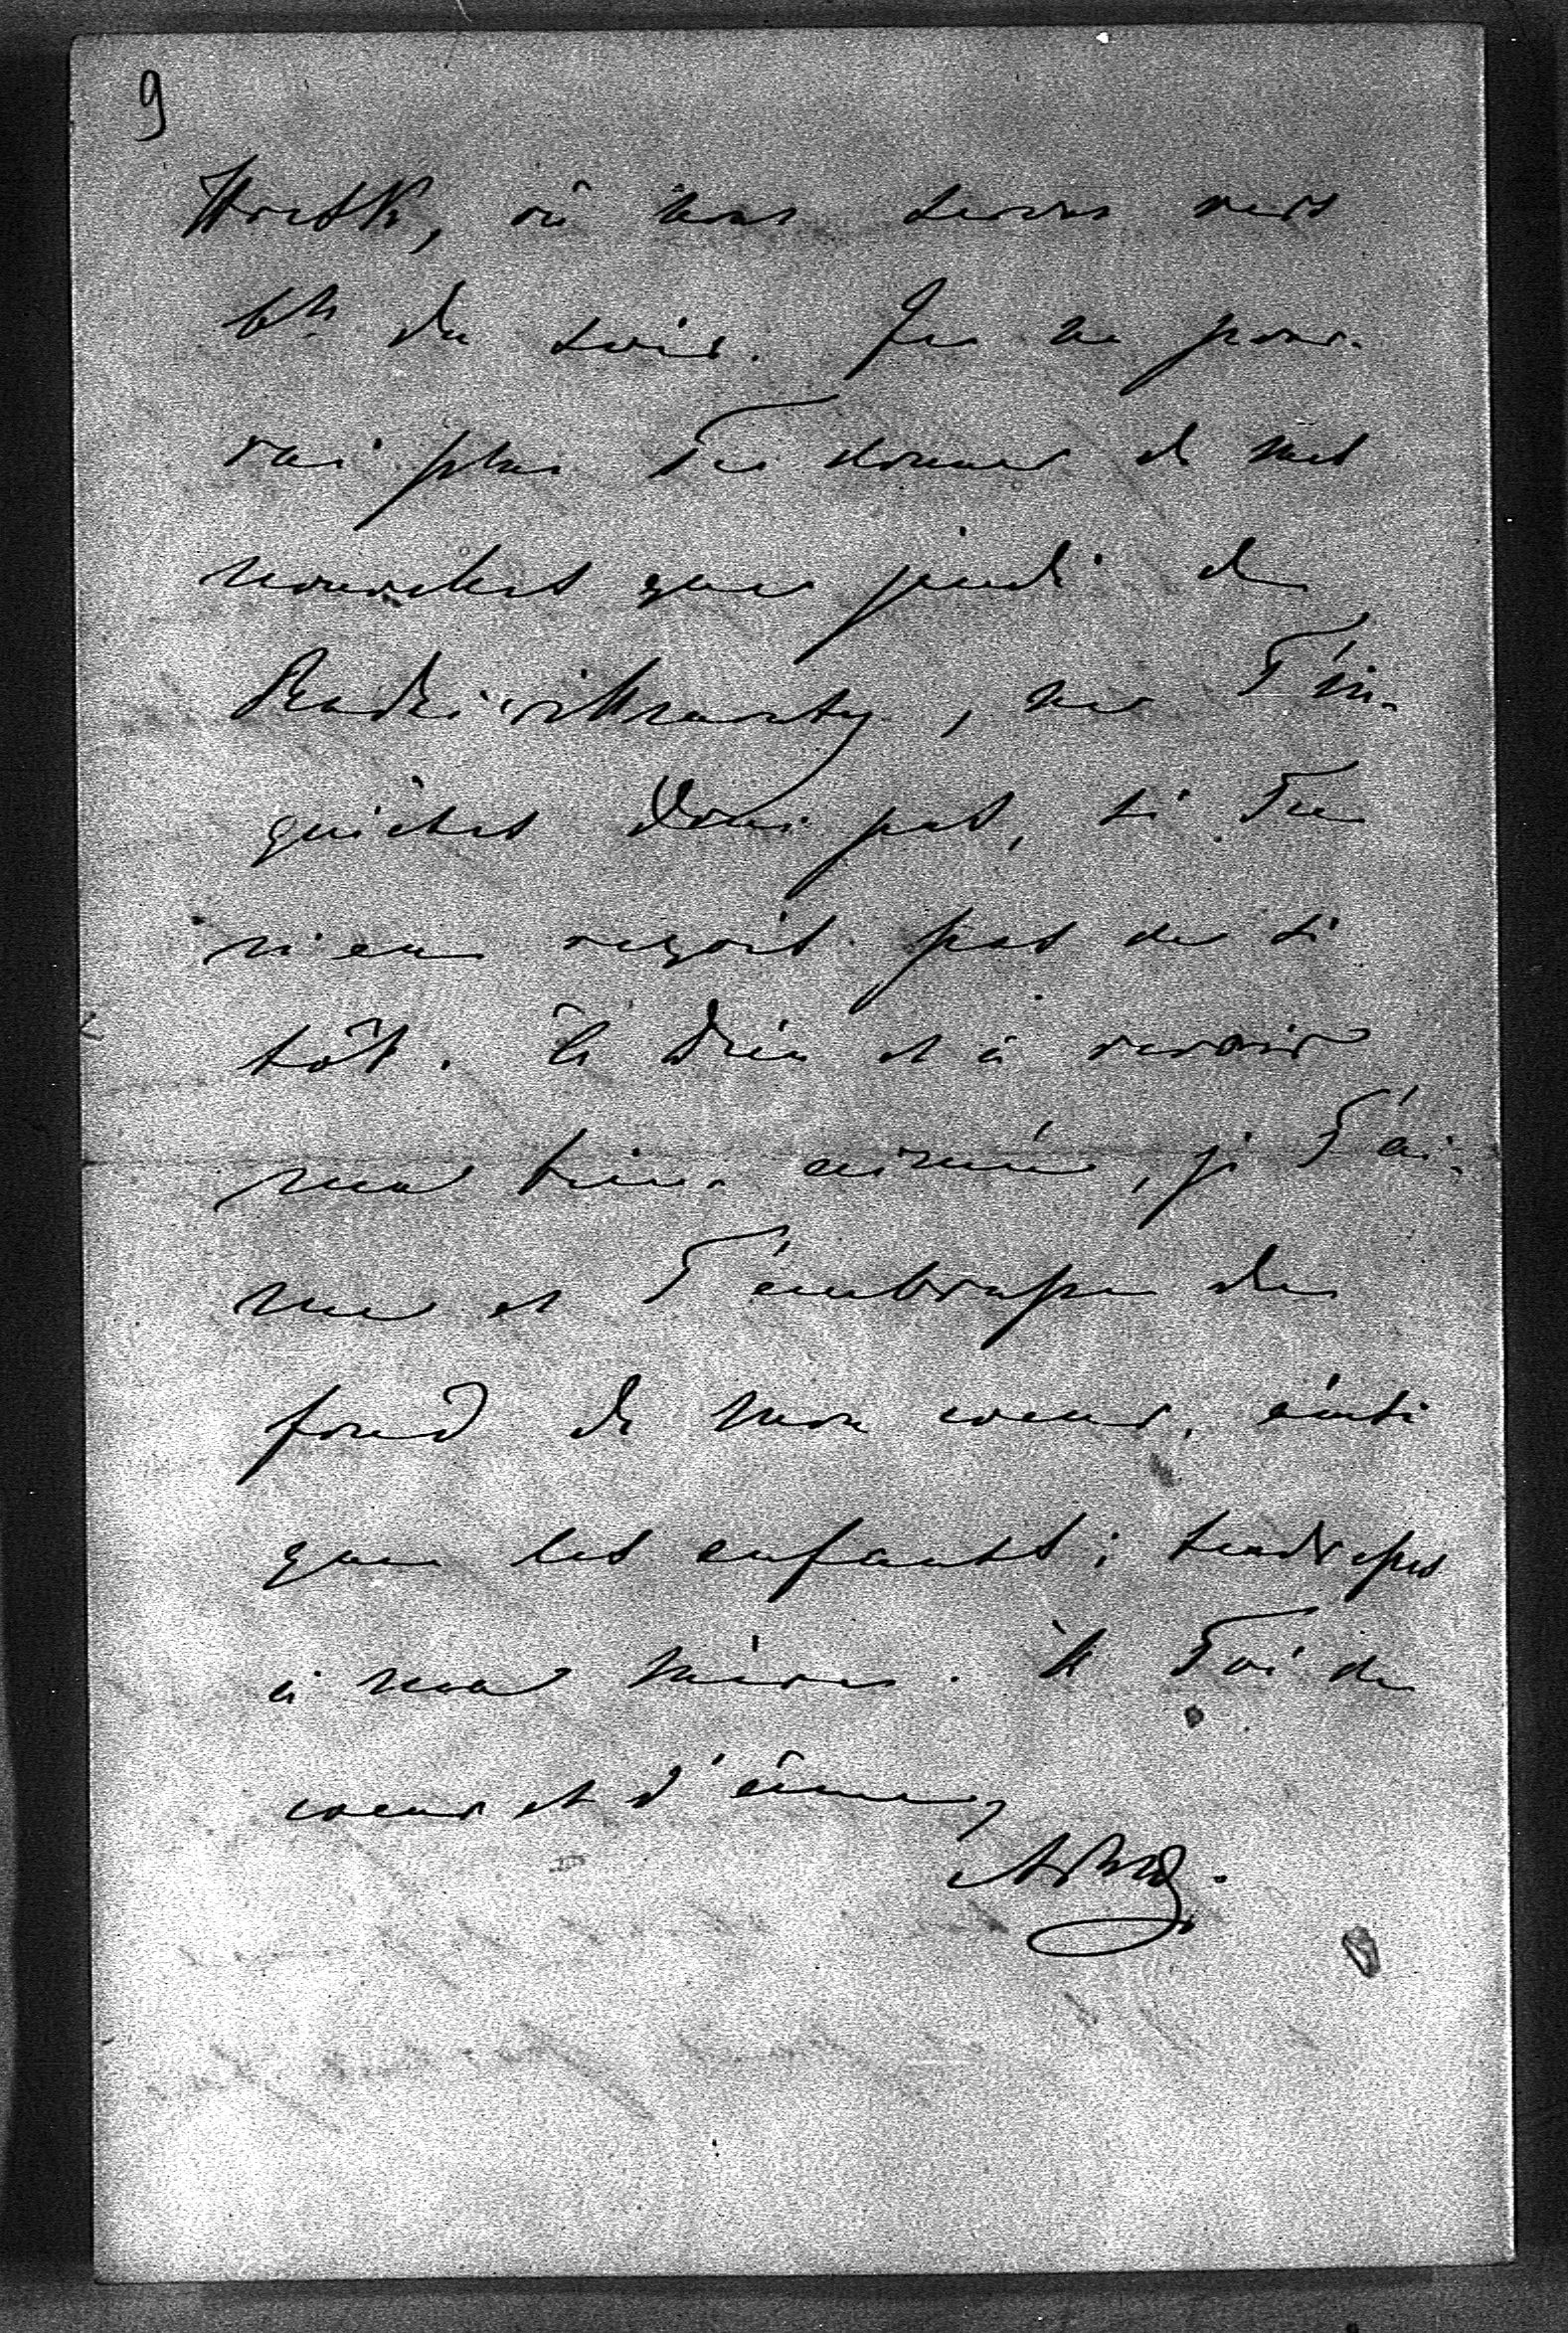 9
où nous serons vers
6h du soir. Je ne pour-
rai plus Te donner de mes
nouvelles que jeudi de
, ne T'in-
quiètes donc pas, si Tu
n'en reçois pas de si
tôt. à Dieu et à revoir
ma bien-aimée, je T'ai-
me et T'embrasse du
fond de mon coeur, ainsi
que les enfants; tendresses
à ma mère. à Toi de
coeur et d'âme,